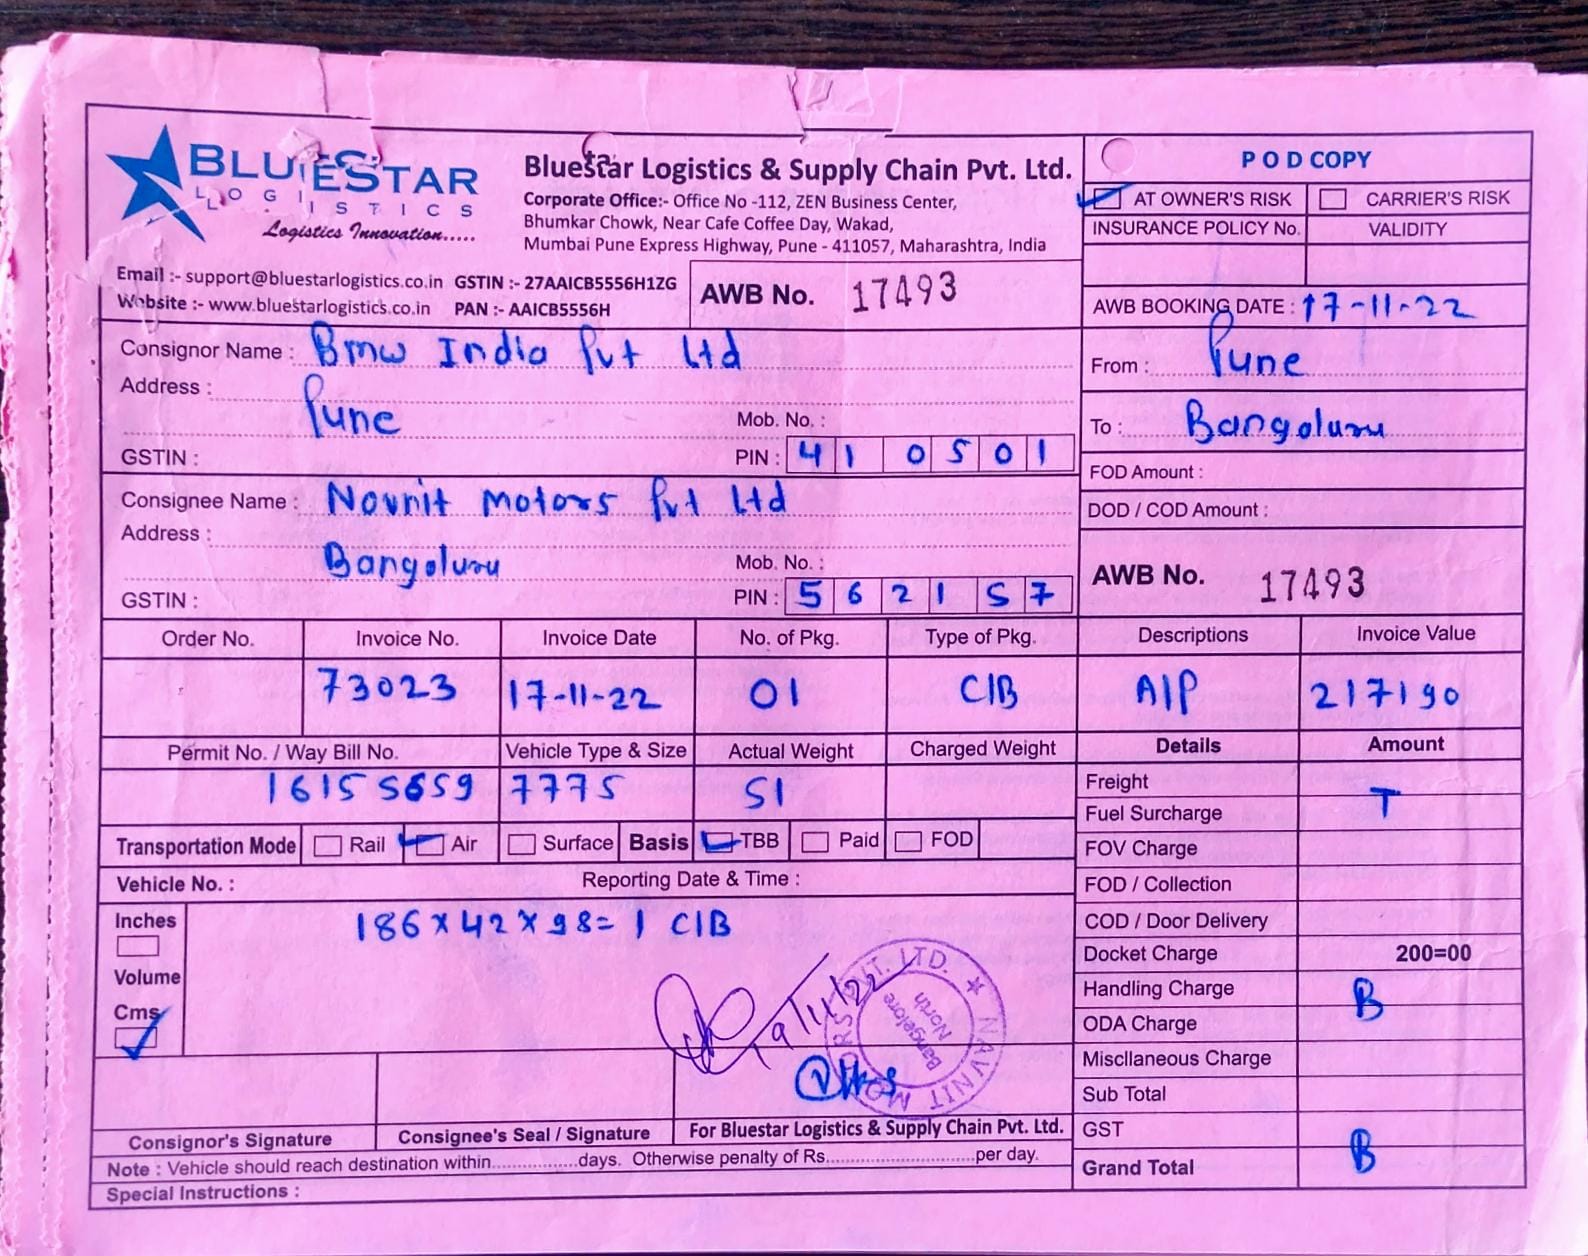 BLUESTAR
LOGISTICS
Logistics Innovation.....
Bluestar Logistics & Supply Chain Pvt. Ltd.
Corporate Office:- Office No -112, ZEN Business Center,
Bhumkar Chowk, Near Cafe Coffee Day, Wakad,
Mumbai Pune Express Highway, Pune - 411057, Maharashtra, India
Email :- support@bluestarlogistics.co.in GSTIN :- 27AAICB5556H1ZG
Website :- www.bluestarlogistics.co.in PAN :- AAICB5556H
AWB No. 17493
POD COPY
AT OWNER'S RISK CARRIER'S RISK
INSURANCE POLICY No. VALIDITY
AWB BOOKING DATE : 17-11-22
Consignor Name : Bmw India Pvt Ltd
Address :
Pune
Mob. No. :
GSTIN : PIN : 410501
From : Pune
To : Bangaluru
FOD Amount :
DOD / COD Amount :
Consignee Name : Navnit Motors Pvt Ltd
Address :
Bangaluru
Mob. No. :
GSTIN : PIN : 562157
AWB No. 17493
Order No. Invoice No. Invoice Date No. of Pkg. Type of Pkg. Descriptions Invoice Value
73023 17-11-22 01 C/B A/P 217190
Permit No. / Way Bill No. Vehicle Type & Size Actual Weight Charged Weight Details Amount
16155659 7775 51
Freight
T
Fuel Surcharge
Transportation Mode Rail Air Surface Basis TBB Paid FOD
FOV Charge
Vehicle No. : Reporting Date & Time :
FOD / Collection
Inches 186 x 42 x 98 = 1 C/B
COD / Door Delivery
Volume
Docket Charge 200=00
Cms
Handling Charge
B
ODA Charge
Miscllaneous Charge
Sub Total
GST
Grand Total B
19/11/22
NAVNIT MOTORS PVT. LTD.
Bangalore
North
Consignor's Signature Consignee's Seal / Signature For Bluestar Logistics & Supply Chain Pvt. Ltd.
Note : Vehicle should reach destination within..................days. Otherwise penalty of Rs..............................per day.
Special Instructions :